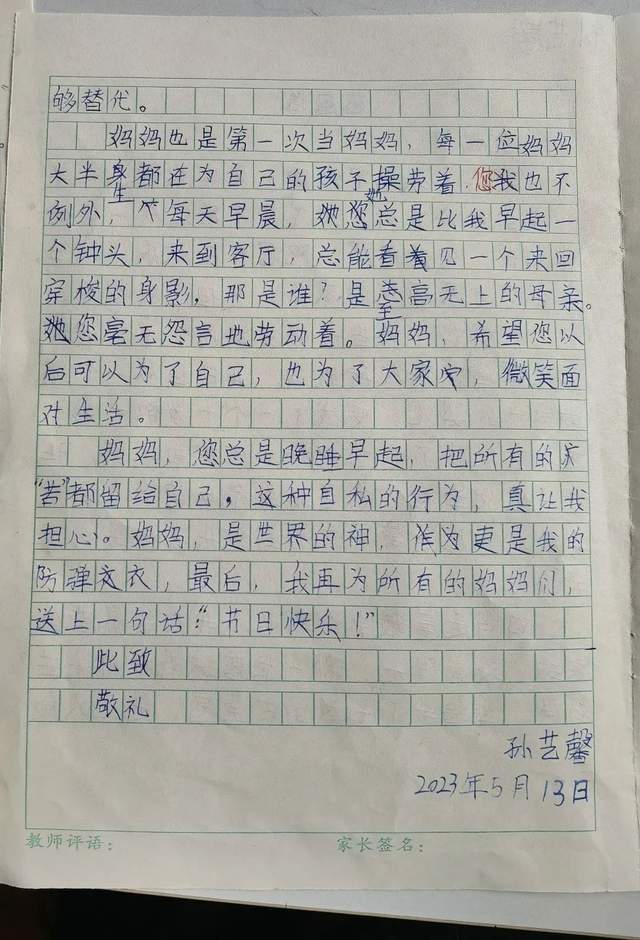 够替代。
妈妈也是第一次当妈妈，每一位妈妈
大半身生都在为自己的孩子她操劳着，您我也不
例外，个每天早晨，她您总是比我早起一
个钟头，来到客厅，总能看着见一个来回
穿梭的身影，那是谁？是至高无上的母亲。
她您毫无怨言地劳动着。妈妈，希望您以
后可以为了自己，也为了大家，微笑面
对生活。
妈妈，您总是晚睡早起，把所有的
“苦”都留给自己，这种自私的行为，真让我
担心。妈妈，是世界的神，作为更是我的
防弹衣，最后，我再为所有的妈妈们，
送上一句话：“节日快乐！”
此致
敬礼
孙艺馨
2023年5月13日
教师评语： 家长签名：